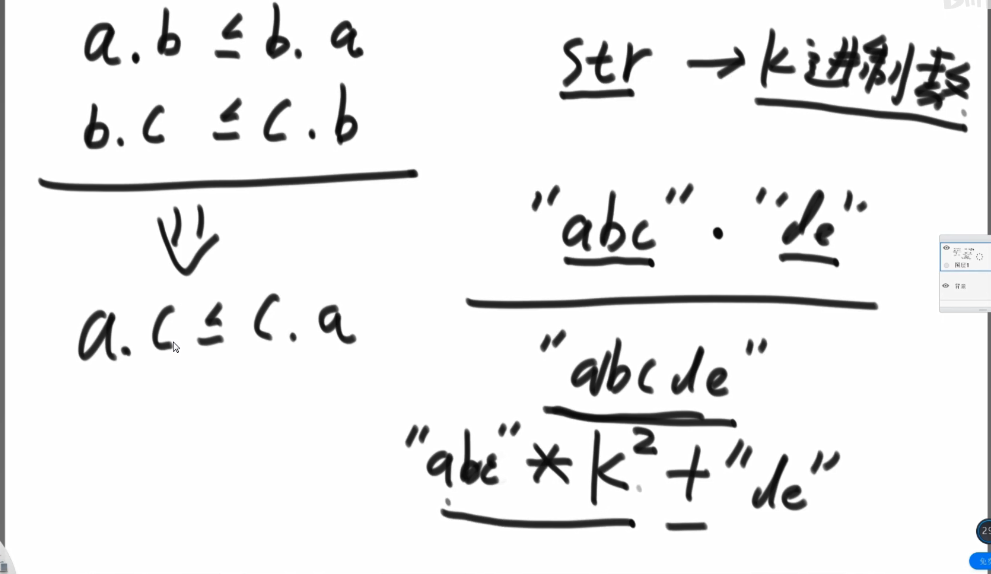 a.b ≤ b.a
b.c ≤ c.b
a.c ≤ c.a
str → k进制数
"abc" · "de"
"abcde"
"abc" * k² + "de"
背景